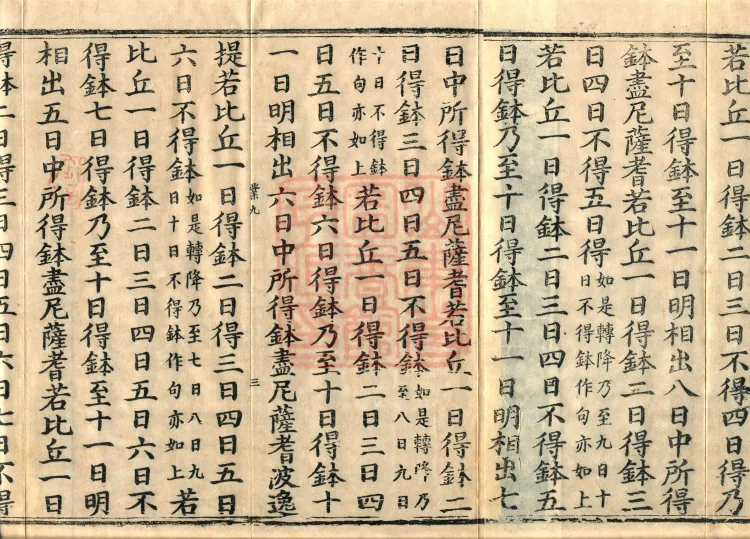 若比丘一日得鉢二日得三日不得四日得乃
至十日得鉢至十一日明相出八日中所得
鉢盡尼薩耆若比丘一日得鉢二日得鉢三
日四日不得五日得如是轉降乃至九日十日不得鉢作句亦如上
若比丘一日得鉢二日三日四日不得鉢五
日得鉢乃至十日得鉢至十一日明相出七
日中所得鉢盡尼薩耆若比丘一日得鉢二
日得鉢三日四日五日不得鉢如是轉降乃至八日九日
十日不得鉢作句亦如上若比丘一日得鉢二日三日四
日五日不得鉢六日得鉢乃至十日得鉢十
一日明相出六日中所得鉢盡尼薩耆波逸
業九 三
提若比丘一日得鉢二日得三日四日五日
六日不得鉢如是轉降乃至七日八日九日十日不得鉢作句亦如上若
比丘一日得鉢二日三日四日五日六日不
得鉢七日得鉢乃至十日得鉢至十一日明
相出五日中所得鉢盡尼薩耆若比丘一日
得鉢二日得三日四日五日六日七日不得